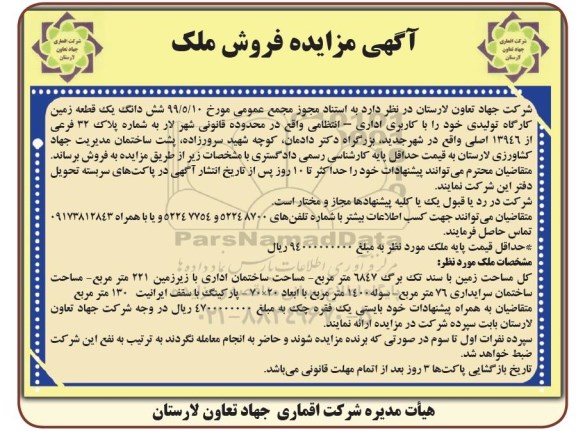 آگهی مزایده فروش ملک
شرکت اقماری
جهاد تعاون
لارستان
شرکت اقماری
جهاد تعاون
لارستان
شرکت جهاد تعاون لارستان در نظر دارد به استناد مجوز مجمع عمومی مورخ ۹۹/۵/۱۰ شش دانگ یک قطعه زمین
کارگاه تولیدی خود را با کاربری اداری - انتظامی واقع در محدوده قانونی شهر لار به شماره پلاک ۳۲ فرعی
از ۱۳۹۴۶ اصلی واقع در شهرجدید، بزرگراه دکتر دادمان، کوچه شهید سرورزاده، پشت ساختمان مدیریت جهاد
کشاورزی لارستان به قیمت حداقل پایه کارشناسی رسمی دادگستری با مشخصات زیر از طریق مزایده به فروش برساند.
متقاضیان محترم می‌توانند پیشنهادات خود را حداکثر تا ۱۰ روز پس از تاریخ انتشار آگهی در پاکت‌های سربسته تحویل
دفتر این شرکت نمایند.
شرکت در رد یا قبول یک یا کلیه پیشنهادها مجاز و مختار است.
متقاضیان می‌توانند جهت کسب اطلاعات بیشتر با شماره تلفن‌های ۵۲۲۴۸۷۰۰ و ۵۲۲۴۷۷۵۴ و یا با همراه ۰۹۱۷۳۸۱۲۸۴۳
تماس حاصل فرمایند.
*حداقل قیمت پایه ملک مورد نظر به مبلغ ۹۴۰۰۰۰۰۰۰۰۰ ریال
مشخصات ملک مورد نظر:
کل مساحت زمین با سند تک برگ ۶۸۴۷ متر مربع - مساحت ساختمان اداری با زیرزمین ۲۲۱ متر مربع - مساحت
ساختمان سرایداری ۷۶ متر مربع - سوله ۱۴۰۰ متر مربع با ابعاد ۲۰*۷۰ - پارکینگ با سقف ایرانیت ۱۳۰ متر مربع
متقاضیان به همراه پیشنهادات خود بایستی یک فقره چک به مبلغ ۴۷۰۰۰۰۰۰۰۰ ریال در وجه شرکت جهاد تعاون
لارستان بابت سپرده شرکت در مزایده ارائه نمایند.
سپرده نفرات اول تا سوم در صورتی که برنده مزایده شوند و حاضر به انجام معامله نگردند به ترتیب به نفع این شرکت
ضبط خواهد شد.
تاریخ بازگشایی پاکت‌ها ۳ روز بعد از اتمام مهلت قانونی می‌باشد.
هیأت مدیره شرکت اقماری جهاد تعاون لارستان
ParsNamadData